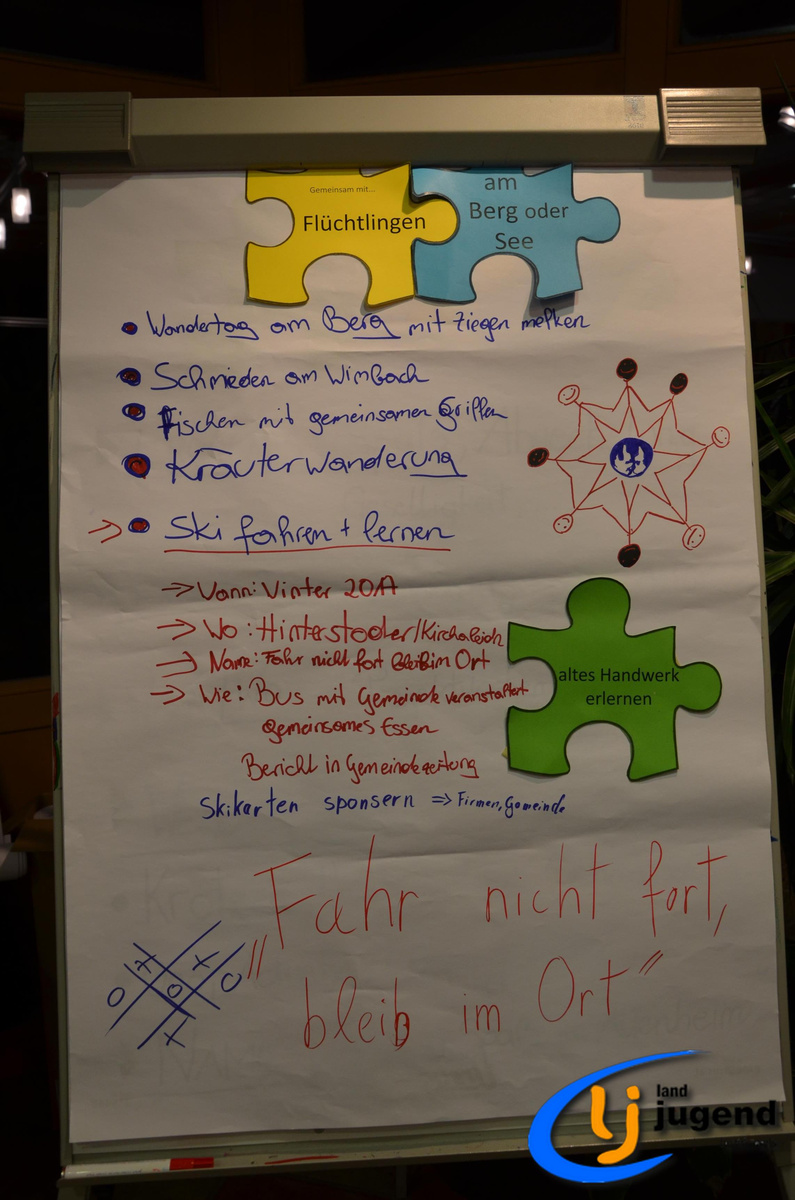 Gemeinsam mit...
Flüchtlingen
am
Berg oder
See
Wandertag am Berg mit Ziegen melken
Schmieden am Wimbach
Fischen mit gemeinsamen Grillen
Kräuterwanderung
Ski fahren + lernen
→ Wann: Winter
→ Wo: Hinterstoder/
→ Name: Fahr nicht fort bleib im Ort
→ Wie: Bus mit Gemeinde veranstaltet
gemeinsames Essen
Bericht in Gemeindezeitung
Skikarten sponsern ⇒ Firmen, Gemeinde
altes Handwerk
erlernen
"Fahr nicht fort,
bleib im Ort"
x x
O O O
x
lj land
jugend